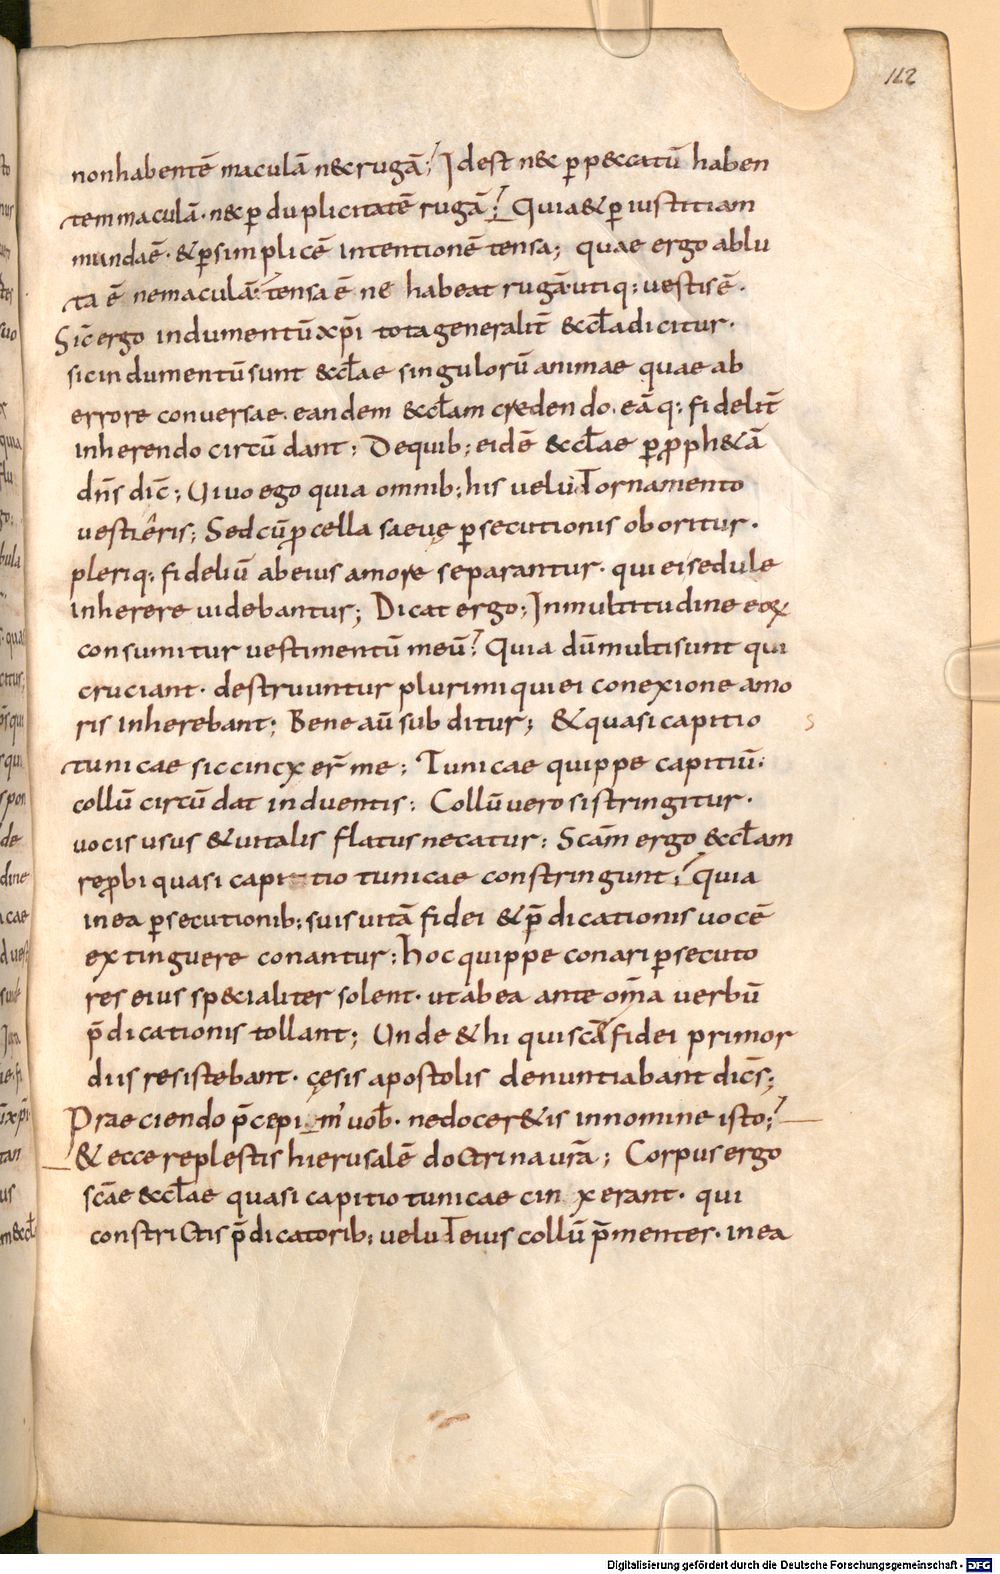 112
non habentē maculā nec rugā; Idest nec p̱ peccatū haben
tem maculā. nec p̱ duplicitatē rugā; Quia & p̱ iustitiam
mundaē. & p̱ simplicē intentionē tensa; quae ergo ablu
ta ē ne maculā: tensa ē ne habeat rugā. utiq; uestis ē.
Sic̄ ergo indumentū xp̄i tota generalit̄ eccl̄a dicitur.
sic indumentū sunt eccl̄ae singulorū animae quae ab
errore conversae. eandem eccl̄am credendo. eāq; fidelit̄
inherendo circūdant; De quib; eidē eccl̄ae p̱ p̱ph&ā
dn̄s dic̄; Uiuo ego quia omnib; his uelut ornamento
uestiēris; Sed cū p̱cella saeuę p̱secutionis oboritur.
pleriq; fideliū ab eius amore separantur. qui ei sedule
inherere uidebantur; Dicat ergo; In multitudine eoꝝ
consumitur uestimentū meū; Quia dū multi sunt qui
cruciant. destruuntur plurimi qui ei conexione amo
ris inherebant; Bene aū subditur; & quasi capitio
s
tunicae siccinx er̄ me; Tunicae quippe capitiū.
collū circūdat induentis; Collū uero si stringitur.
uocis usus & uitalis flatus necatur; Scām ergo eccl̄am
rep̱bi quasi capitio tunicae constringunt; quia
in ea p̱secutionib; suis uitā fidei & p̄dicationis uocē
extinguere conantur; hoc quippe conari p̱secuto
res eius specialiter solent. ut ab ea ante om̄a uerbū
p̄dicationis tollant; Unde & hi qui scā fidei primor
diis resistebant. cęsis apostolis denuntiabant dic̄s;
Praeciendo p̄cepim' uob̄. ne docer&is in nomine isto;
& ecce replestis hierusalē doctrina ur̄a; Corpus ergo
scāe eccl̄ae quasi capitio tunicae cinxerant. qui
constrictis p̄dicatorib; uelut eius collū p̄mentes. in ea
Digitalisierung gefördert durch die Deutsche Forschungsgemeinschaft - DFG